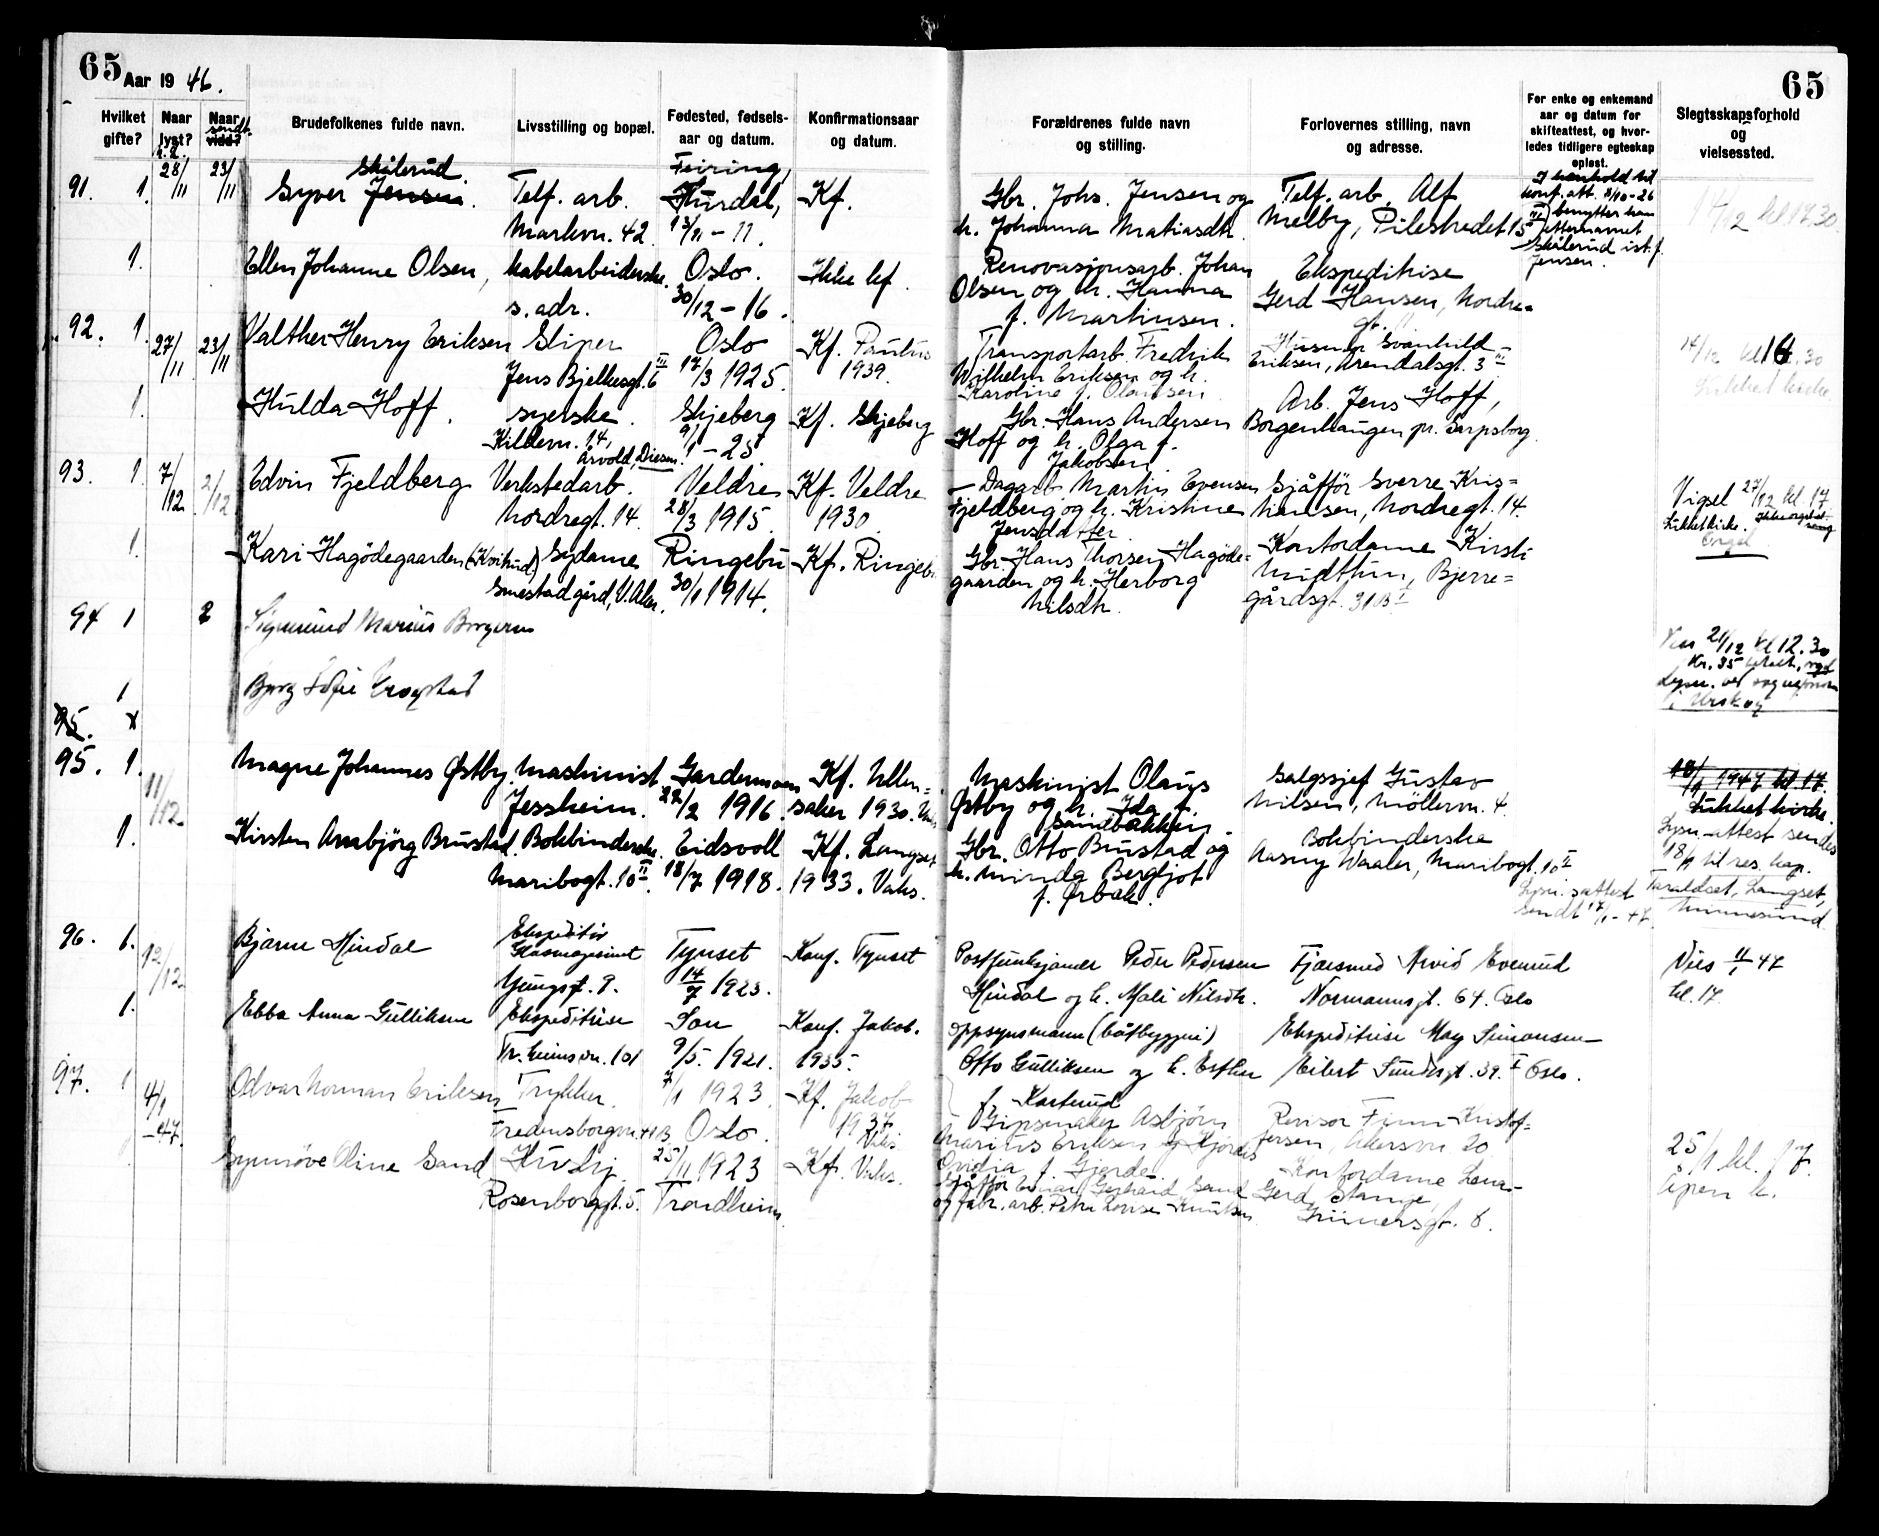 65 Aar 19 46.
65
Hvilket gifte?
Naar lyst?
Naar sendt vidd?
Brudefolkenes fulde navn.
Livsstilling og bopæl.
Fødested, fødsels-
aar og datum.
Konfirmationsaar
og datum.
Forældrenes fulde navn
og stilling.
Forlovernes stilling, navn
og adresse.
For enke og enkemand
aar og datum for
skifteattest, og hvor-
ledes tidligere egteskap
opløst.
Slegtsskapsforhold
og
vielsessted.
91. 1. 28/11 23/11
Skålerud
Syver Jensen.
Telf. arb.
Markvn. 42.
Feiring,
Hurdal,
13/11 - 11.
Kf.
Gbr. Johs. Jensen og
h. Johanna Matiasdtr.
Telf. arb. Alf
Melby, Pilestredet 15 III
I henhold til
konf. att. 3/10-26
benytter han
etternavnet
Skålerud ist. f.
Jensen.
14/12 kl. 17.30.
1.
Ellen Johanne Olsen,
kabelarbeiderske.
s. adr.
Oslo.
30/12 - 16.
Ikke kf.
Renovasjonsarb. Johan
Olsen og h. Hanna
f. Martinsen.
Ekspeditrise
Gerd Hansen, Nordre
gt. 11.
92. 1. 27/11 23/11
Valther Henry Eriksen
Sliper
Jens Bjelkesgt. 6 III
Oslo
17/3 1925.
Kf. Paulus
1939.
Transportarb. Fredrik
Wilhelm Eriksen og h.
Karoline f. Olaussen
Svanhild
Eriksen, Arendalsgt. 3 III
14/12 kl 16.30
Lukket kirke
1.
Hulda Hoff.
syerske.
Kildevn. 14,
Årvold,
Skjeberg
9/1 - 25.
Kf. Skjeberg
Gbr. Hans Andersen
Hoff og h. Olga f.
Jakobsen
Arb. Jens Hoff,
Borgenhaugen pr. Sarpsborg.
93. 1. 7/12 2/12
Edvin Fjeldberg
Verkstedarb.
Nordregt. 14.
Veldre
28/3 1915.
Kf. Veldre
1930.
Dagarb. Martin Evensen
Fjeldberg og h. Kristine
Jensdatter
Sjåffør Sverre Kris=
tiansen, Nordregt. 14.
Vigsel 27/12 kl. 17
Lukket kirke.
Orgel
1.
Kari Hagödegaarden (Kvitrud)
Sydame
Smestad gård, V. Aker.
Ringebu
30/1 1914.
Kf. Ringebu
Gbr. Hans Thorsen Hagöde=
gaarden og h. Herborg
Nilsdtr.
Kontordame Kirsti
Midttun, Bjerre=
gårdsgt. 31 B I
94 1 2
Sigmund Marius Borgersen
Vies 21/12 kl 12.30
Kr. 35 betalt.
Lysn. ved sogneprest
i Urskog
1
Borg Sofie Krogstad
95. x
95. 1. 11/12
Magne Johannes Østby.
Maskinist
Jessheim.
Gardermoen
22/2 1916.
Kf. Ullen=
saker 1930. Vaks.
Maskinist Olaus
Østby og h. Ida f.
Sandbakken.
Salgssjef Gustav
Nilsen, Möllervn. 4.
18/1 1947 kl. 17.
Lukket kirke.
Lysn.-attest sendes
18/1 til res. kap.
Taraldset, Langset,
Minnesund
1.
Kirsten Annbjörg Brustad.
Bokbinderske.
Maribogt. 10 II.
Eidsvoll
18/7 1918.
Kf. Langset
1933. Vaks.
Gbr. Otto Brustad og
h. Minda Bergljot
f. Ørbæk.
Bokbinderske
Aasny Waaler, Maribogt. 10 II
Lysn.sattest
sendt 17/1 - 47
96. 1. 12/12
Bjarne Hindal
Ekspeditör
Glasmagasinet
Youngsgt. 9.
Tynset
14/7 1923.
Konf. Tynset
Postfunksjonær Peder Pedersen
Hindal og h. Mali Nilsdtr.
Fjærsmed Arvid Evenrud
Normannsgt. 64. Oslo
Vies 11/1 47
kl. 17.
1.
Ebba Anna Gulliksen
Ekspeditrise
Tr.heimsvn. 101
Son
9/5 1921.
Konf. Jakob.
1935.
Oppsynsmann (båtbyggeri)
Otto Gulliksen og h. Esther
f. Karterud
Ekspeditrise May Simonsen
Eilert Sundsgt. 39. I Oslo.
97. 1 4/1 -47.
Odvar Norman Eriksen
Trykker.
Fredensborgvn. 41 B
7/1 1923.
Oslo.
Kf. Jakob
1937.
Vaks.
Gipsmaker Asbjörn
Marius Eriksen og Hjördis
Ovidia f. Gjerde
Revisor Finn Kristof=
fersen, Akersvn 20
25/1 kl. 17.
Åpen k.
Synnöve Oline Sand
Husbj.
Rosenborggt. 5.
25/11 1923
Trondheim
Kf. Vaks.
Sjåffør Einar Gerhard Sand
og fabr. arb. Petra Lovise Knutsen
Kontordame Lena
Gerd Stange,
Grünersgt. 6.